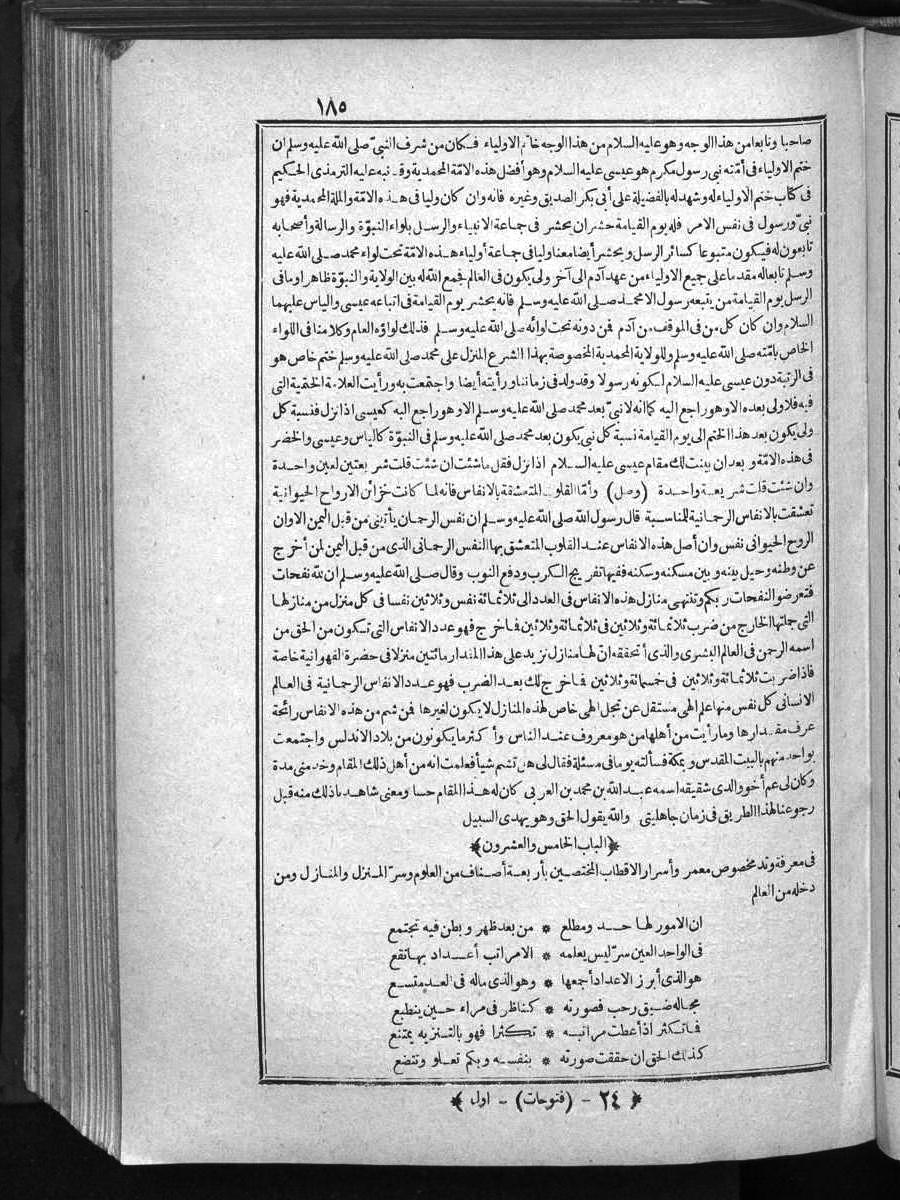 ١٨٥
صاحبا وتابعا من هذا الوجه وهو عليه السلام من هذا الوجه خاتم الاولياء فكان من شرف النبي صلى الله عليه وسلم ان
ختم الاولياء في أمته نبي رسول مكرم هو عيسى عليه السلام وهو أفضل هذه الامة المحمدية وقد نبه عليه الترمذي الحكيم
في كتاب ختم الاولياء له وشهد له بالفضيلة على أبي بكر الصديق وغيره فانه وان كان وليا في هذه الامة والملة المحمدية فهو
نبي ورسول في نفس الامر فله يوم القيامة حشران يحشر في جماعة الانبياء والرسل بلواء النبوة والرسالة وأصحابه
تابعون له فيكون متبوعا كسائر الرسل ويحشر أيضا معنا وليا في جماعة أولياء هذه الامة تحت لواء محمد صلى الله عليه
وسلم تابعا له مقدما على جميع الاولياء من عهد آدم الى آخر ولي يكون في العالم فجمع الله له بين الولاية والنبوة ظاهرا وما في
الرسل يوم القيامة من يتبعه رسول الا محمد صلى الله عليه وسلم فانه يحشر يوم القيامة في اتباعه عيسى والياس عليهما
السلام وان كان كل من في الموقف من آدم فمن دونه تحت لوائه صلى الله عليه وسلم فذلك لواؤه العام وكلامنا في اللواء
الخاص بأمته صلى الله عليه وسلم وللولاية المحمدية المخصوصة بهذا الشرع المنزل على محمد صلى الله عليه وسلم ختم خاص هو
في الرتبة دون عيسى عليه السلام لكونه رسولا وقد ولد في زماننا ورأيته أيضا واجتمعت به ورأيت العلامة الختمية التي
فيه فلا ولي بعده الا وهو راجع اليه كما انه لا نبي بعد محمد صلى الله عليه وسلم الا وهو راجع اليه كعيسى اذا نزل فنسبة كل
ولي يكون بعد هذا الختم الى يوم القيامة نسبة كل نبي يكون بعد محمد صلى الله عليه وسلم في النبوة كالياس وعيسى والخضر
في هذه الامة وبعد ان بينت لك مقام عيسى عليه السلام اذا نزل فقل ما شئت ان شئت قلت شريعتين لعين واحدة
وان شئت قلت شريعة واحدة (وصل) وأما القلوب المتعشقة بالانفاس فانه لما كانت خزائن الارواح الحيوانية
تعشقت بالانفاس الرحمانية للمناسبة قال رسول الله صلى الله عليه وسلم ان نفس الرحمان يأتيني من قبل اليمن الا وان
الروح الحيواني نفس وان أصل هذه الانفاس عند القلوب المتعشق بها النفس الرحماني الذي من قبل اليمن لمن أخرج
عن وطنه وحيل بينه وبين مسكنه وسكنه ففيها تفريج الكرب ودفع النوب وقال صلى الله عليه وسلم ان لله نفحات
فتعرضوا لنفحات ربكم وتنتهى منازل هذه الانفاس في العدد الى ثلاثمائة نفس وثلاثين نفسا في كل منزل من منازلها
التي جملتها الخارج من ضرب ثلاثمائة وثلاثين في ثلاثمائة وثلاثين فما خرج فهو عدد الانفاس التي تكون من الحق من
اسمه الرحمن في العالم البشري والذي أتحققه ان لها منازل تزيد على هذا المقدار مائتين منزلا في حضرة الفهوانية خاصة
فاذا ضربت ثلاثمائة وثلاثين في خمسمائة وثلاثين فما خرج لك بعد الضرب فهو عدد الانفاس الرحمانية في العالم
الانساني كل نفس منها علم الهي مستقل عن تجل الهي خاص لهذه المنازل لا يكون لغيرها فمن شم من هذه الانفاس رائحة
عرف مقدارها وما رأيت من أهلها من هو معروف عند الناس وأكثر ما يكونون من بلاد الاندلس واجتمعت
بواحد منهم بالبيت المقدس وبمكة فسألته يوما في مسئلة فقال لي هل تشم شيأ فعلمت انه من أهل ذلك المقام وخدمني مدة
وكان لي عم أخو والدي شقيقه اسمه عبد الله بن محمد بن العربي كان له هذا المقام حسا ومعنى شاهدنا ذلك منه قبل
رجوعنا لهذا الطريق في زمان جاهليتي والله يقول الحق وهو يهدى السبيل
﴿الباب الخامس والعشرون﴾
في معرفة وتد مخصوص معمر وأسرار الاقطاب المختصين بأربعة أصناف من العلوم وسر المنزل والمنازل ومن
دخله من العالم
ان الامور لها حد ومطلع * من بعد ظهر وبطن فيه تجتمع
في الواحد العين سر ليس يعلمه * الا مراتب أعداد بها تقع
هو الذي أبرز الاعداد أجمعها * وهو الذي ماله في العد متسع
مجاله ضيق رحب فصورته * كناظر في مراء حين ينطبع
فما تكثر اذ أعطت مراتبه * تكثرا فهو بالتنزيه يمتنع
كذلك الحق ان حققت صورته * بنفسه وبكم تعلو وتتضع
﴿٢٤ - (فتوحات) - اول﴾